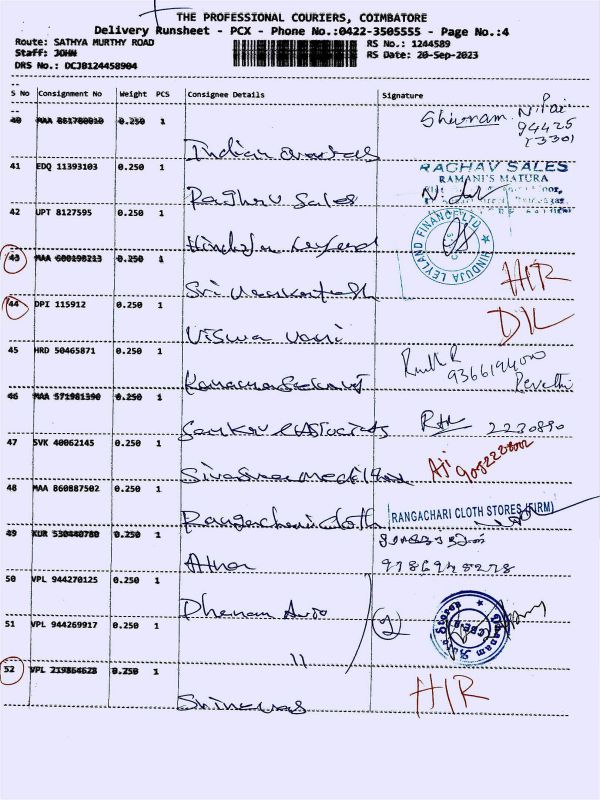 THE PROFESSIONAL COURIERS, COIMBATORE
Delivery Runsheet - PCX - Phone No.:0422-3505555 - Page No.:4
Route: SATHYA MURTHY ROAD
RS No.: 1244589
Staff: JOHN
RS Date: 20-Sep-2023
DRS No.: DCJB124458904
S No Consignment No Weight PCS Consignee Details Signature
40 MAA 861780010 0.250 1
Shivram N. Pai
94425
23301
41 EDQ 11393103 0.250 1 Raghav Sales
RAGHAV SALES
RAMANI'S MATURA
42 UPT 8127595 0.250 1 Hinduja Leyland
HINDUJA LEYLAND FINANCE LTD
43 MAA 600198213 0.250 1 Sri Venkatesh
HIR
44 DPI 115912 0.250 1 Viswa Vani
DK
45 HRD 50465871 0.250 1
9366194000
Revathi
46 MAA 571981390 0.250 1 Sankar Associates
2230890
47 SVK 40062145 0.250 1
Aji
48 MAA 860887502 0.250 1 Rangachari cloth
RANGACHARI CLOTH STORES (FIRM)
49 KUR 530440780 0.250 1
50 VPL 944270125 0.250 1 Dhanam Auto
2
51 VPL 944269917 0.250 1 "
Dhanam Auto Stores
CBE-9
52 VPL 219864628 0.250 1 Srinivas
HIR